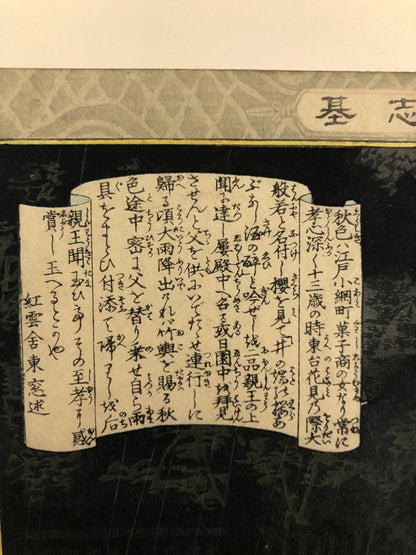 志基
秋色ハ江戸小網町菓子商の女なり常に
孝心深く十三歳の時東台花見の際大
般若と名付し櫻を見て井の端の桜あ
ぶなし酒の酔と吟ぜしを一品親王の上
聞に達し屡殿中へ召る或日園中拝見
させんと父を供ふいでたゝせ連行しに
歸る頃大雨降出ければ竹輿を賜る秋
色途中密に父と替り乗せ自らハ雨
具をまとひ付添て帰りしを后
親王聞その至孝を感
賞し玉へるとかや
紅雲舎東窓述